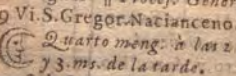 9 Vi. S. Gregor. Nacianceno.
Quarto meng. à las 2
y 3. ms. de la tarde.